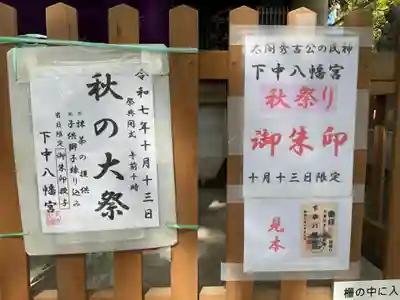 令和七年十月十三日
祭典開式 午前十時
秋の大祭
抹茶の提供
子供獅子練り込み
当日限定 御朱印授与
下中八幡宮
太閤秀吉公の氏神
下中八幡宮
秋祭り
御朱印
十月十三日限定
見本
下中八幡宮
柵の中に入